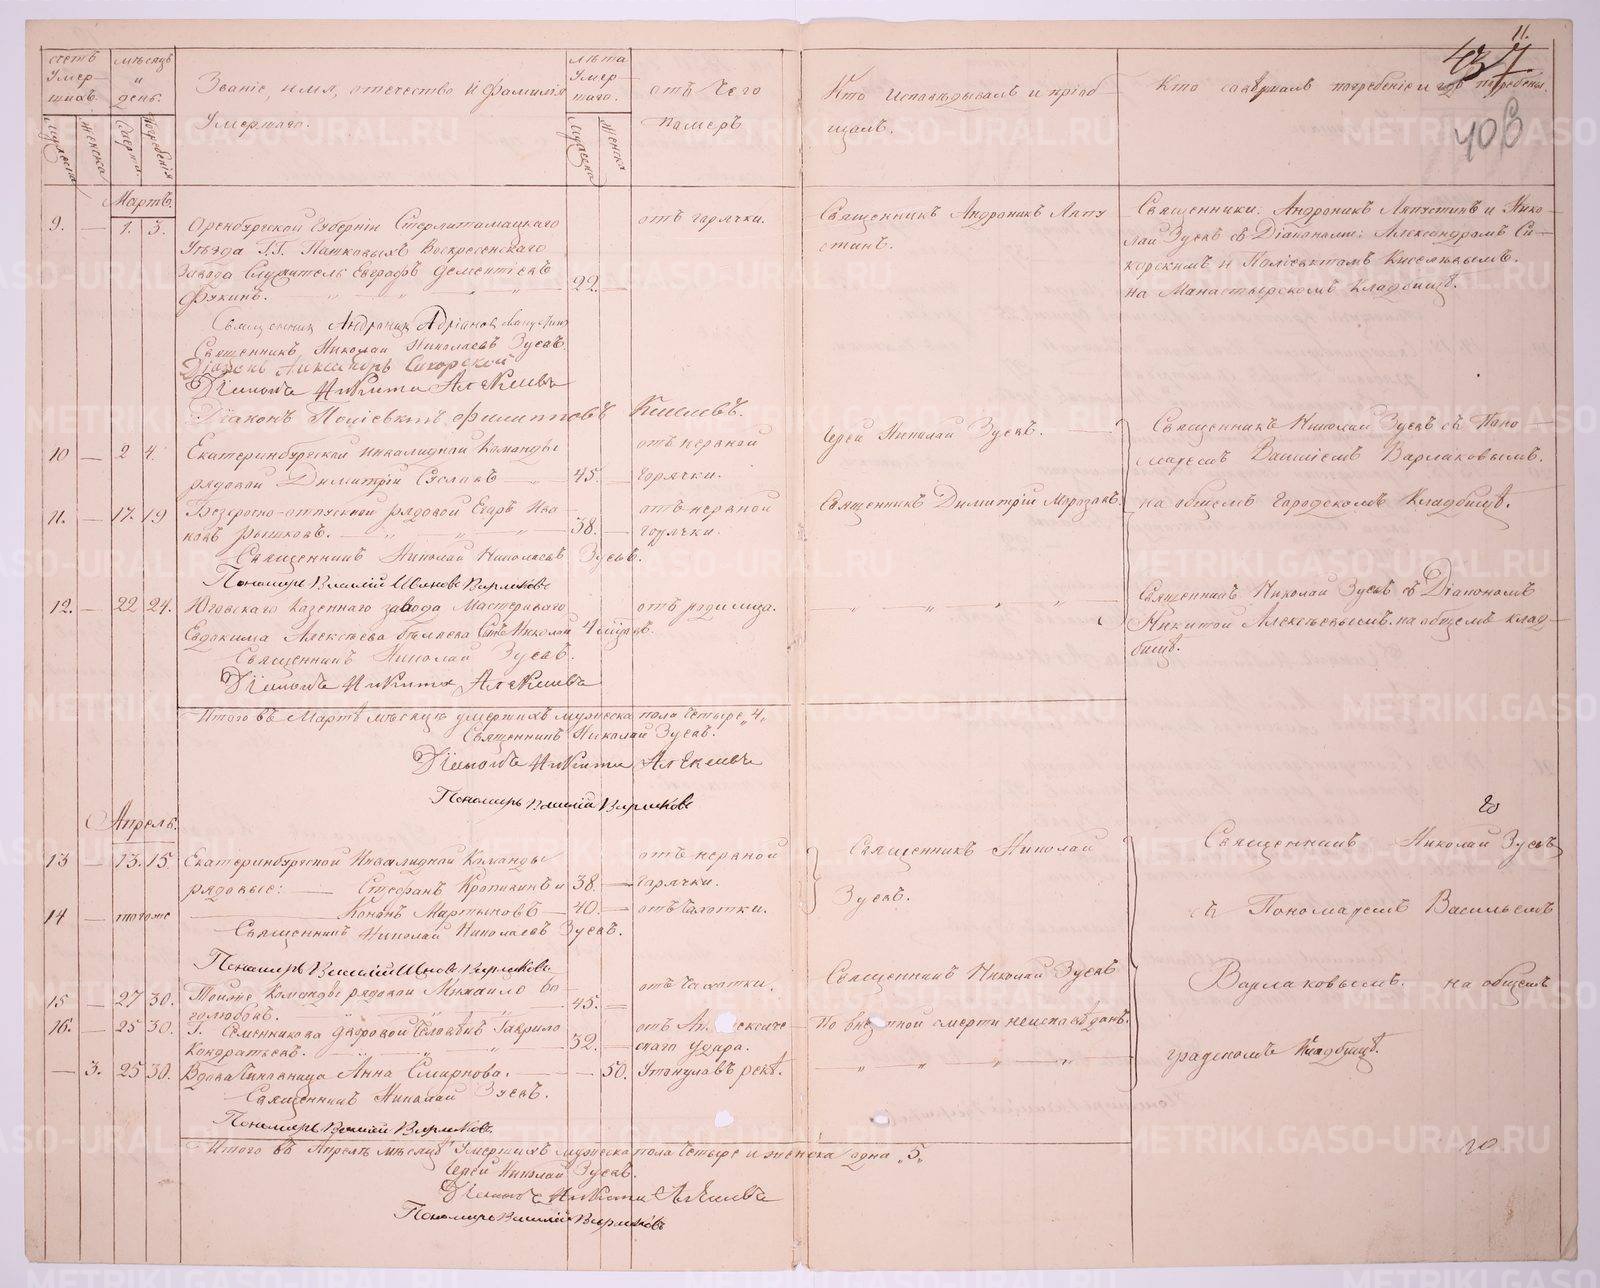 11.
437
403
Счетъ Умер-шихъ.
Мѣсяцъ и день.
Званіе, имя, отечество и фамилія Умершаго.
Лѣта Умер-шаго.
отъ Чего Померъ
Кто Исповѣдывалъ и пріоб-щалъ.
Кто совершалъ погребеніе и гдѣ погребены.
мужеска
женска
Смерти
Погребенія
Мужеска
Женска
Мартъ.
9. — 1. 3. Оренбургской Губерніи Стерлитамацкаго отъ горячки. Священникъ Андроникъ Ляпу Священники: Андроникъ Ляпустинъ и Нико-
Уѣзда Г.Г. Пашковыхъ Воскресенскаго стинъ. лай Зуевъ съ Діаконами: Александромъ Си-
Завода Служитель Евграфъ Дементіевъ 22. — корскимъ и Поліевктомъ Киселевымъ.
Фукинъ. на Манастырскомъ Кладбищѣ.
Священник Андроник Адріанов
Священникъ Николай Николаевъ Зуевъ.
Діаконъ Александръ Сикорской
Діаконъ Никита Алексѣевъ
Діаконъ Поліевктъ Филипповъ Киселевъ.
10 — 2 4. Екатеринбургской инвалидной Команды отъ нервной Іерей Николай Зуевъ. — Священникъ Николай Зуевъ съ Поно-
рядовой Димитрій Суславъ — 45. — горячки. маремъ Василіемъ Варлаковымъ.
11. — 17. 19 Безсрочно-отпускной рядовой Егоръ Ива- отъ нервной Священникъ Димитрій Морозовъ. на общемъ Городскомъ Кладбищѣ.
новъ Рышковъ. — 38. — горячки.
Священникъ Николай Николаевъ Зуевъ.
Пономарь Василій Ивановъ Варлаковъ
12. — 22 24. Юговскаго Казеннаго завода Мастероваго отъ родимца. Священникъ Николай Зуевъ съ Діакономъ
Евдокима Алексѣева Бѣляева Сынъ Николай 4 мѣсяцъ. Никитой Алексѣевымъ. на общемъ клад-
Священникъ Николай Зуевъ. бищѣ.
Діаконъ Никита Алексѣевъ
Итого въ Мартѣ мѣсяцѣ умершихъ мужеска пола Четыре „4„
Священникъ Николай Зуевъ.
Діаконъ Никита Алексѣевъ
Пономарь Василій Варлаковъ
Апрель.
13 — 13. 15. Екатеринбургской Инвалидной Команды отъ нервной Священникъ Николай Священникъ Николай Зуевъ
рядовые: — Стефанъ Кропивинъ и 38. — горячки. Зуевъ.
14 — тогоже — Кононъ Мартыновъ — 40. — отъ Чахотки. съ Пономаремъ Васильемъ
Священникъ Николай Николаевъ Зуевъ.
Пономарь Василий Ивновъ Варлаковъ
15 — 27 30. Тойже Команды рядовой Михайло Бо- отъ Чахотки. Священникъ Николай Зуевъ Варлаковымъ. на общемъ
голюбовъ. 45. —
16. — 25 30. Г. Семенникова дворовой Человѣкъ Гаврило отъ По внезапной смерти неисповѣданъ.
Кондратьевъ. 52. — скаго Удара. градскомъ Кладбищѣ.
— 3. 25 30. Вдова Чиновница Анна Смирнова. — 50. Утонула въ рекѣ.
Священникъ Николай Зуевъ.
Пономарь Василій Варлаковъ.
Итого въ Апрелѣ мѣсяцѣ Умершихъ мужеска пола Четыре и женска одна „5„
Іерей Николай Зуевъ.
Діаконъ Никита Алексѣевъ
Пономарь Василій Варлаковъ
METRIKI.GASO-URAL.RU